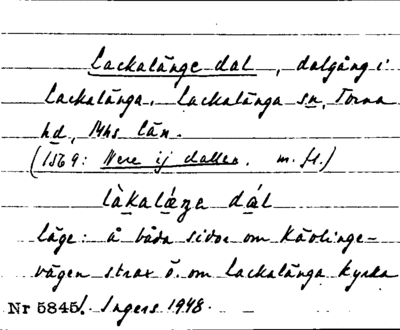 Lackalänge dal, dalgång i
Lackalänga. Lackalänga sn, Torna
hd, Mhs län.
(1569: Nere ij dallen. m. fl.)
làkaláŋe dál
läge: å båda sidor om Kävlinge-
vägen strax ö. om Lackalänga kyrka
Nr 5845. Ingers 1948.